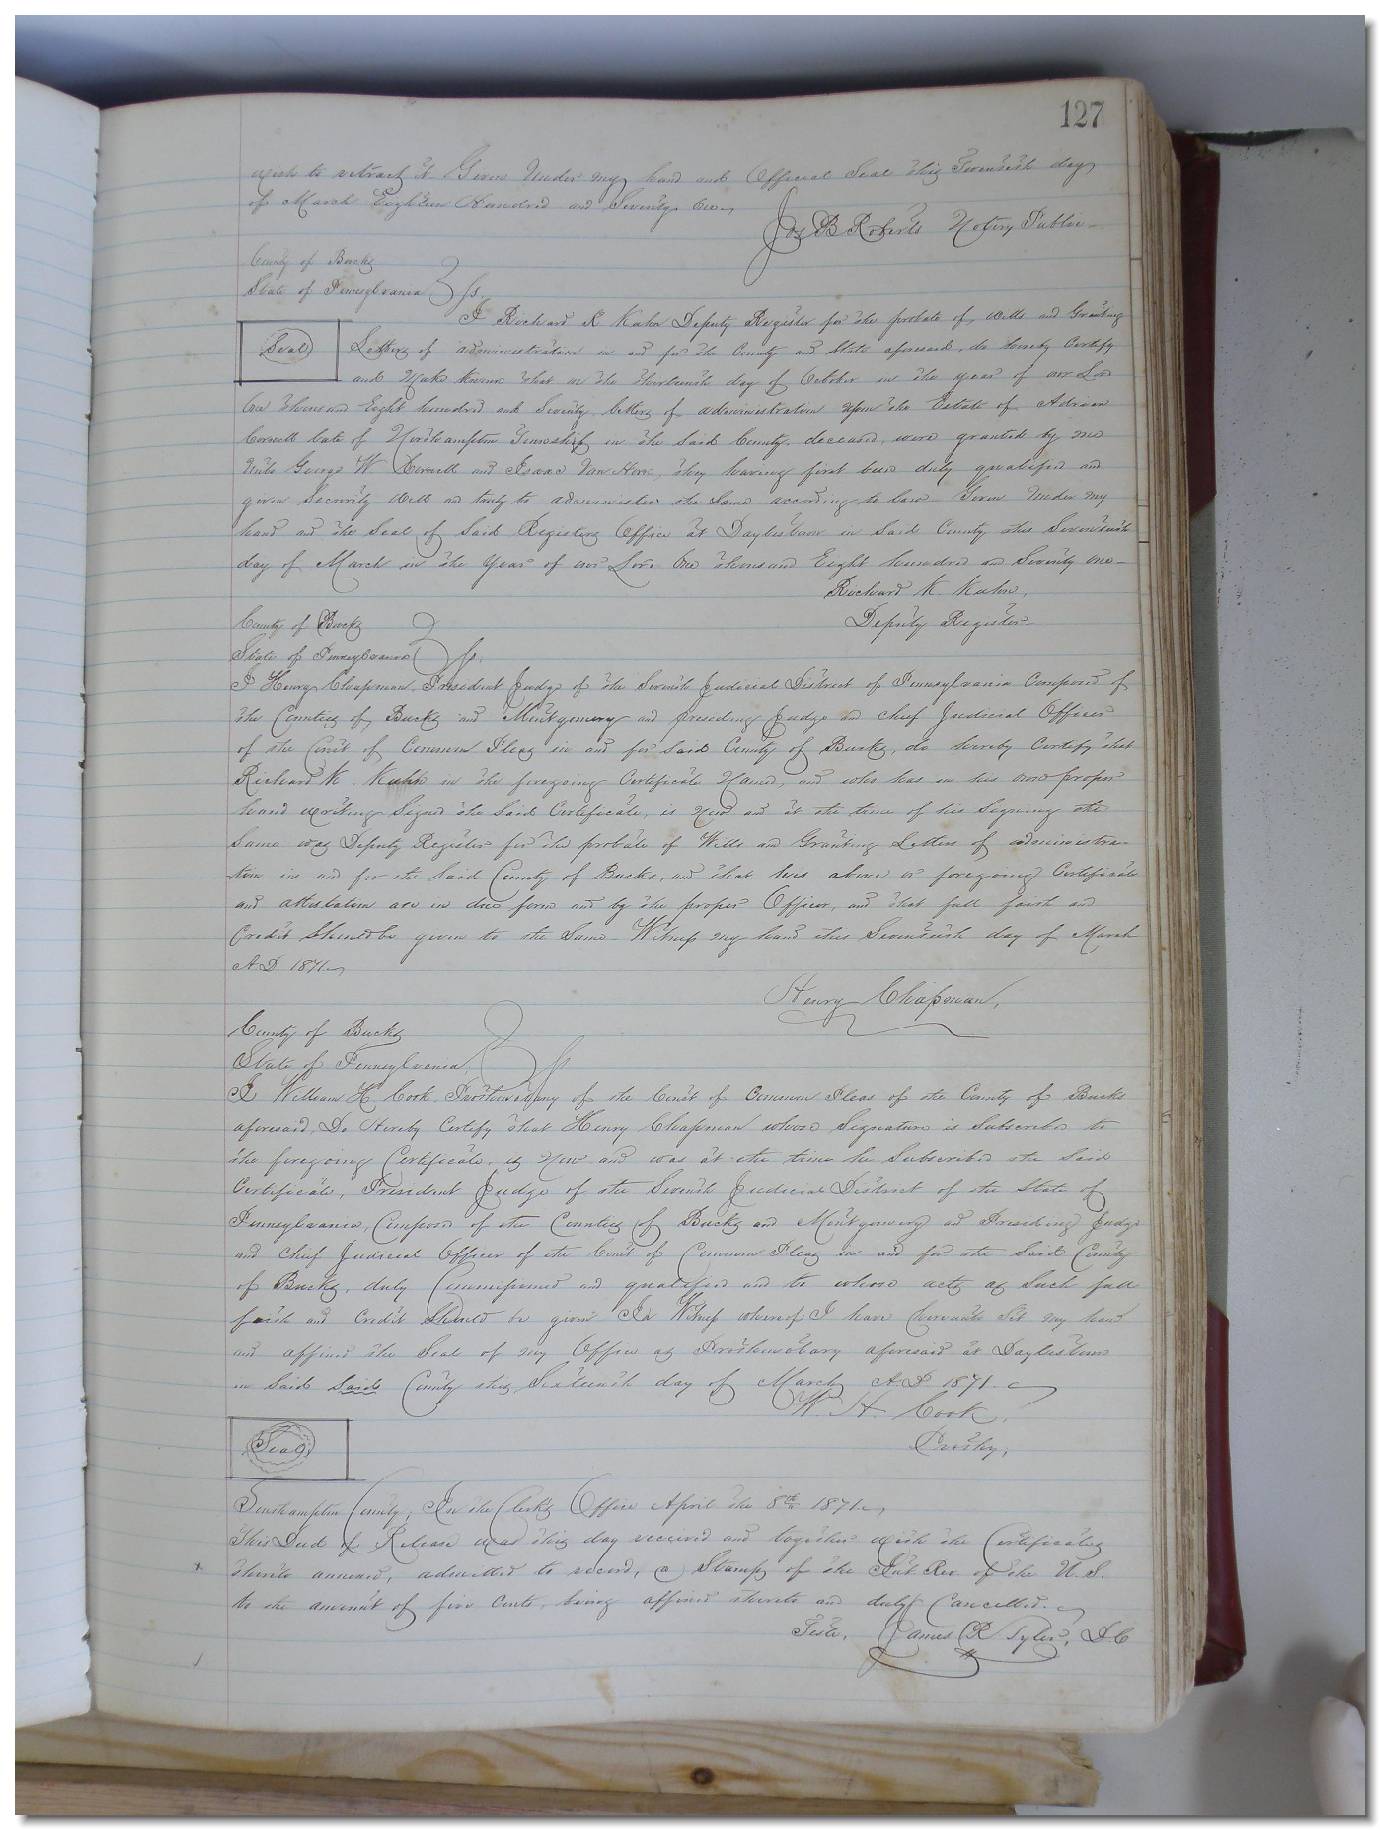 127
wish to retract it Given Under my hand and Official Seal this Seventeenth day
of March Eighteen Hundred and Seventy One
Jos B Roberts Notary Public
County of Bucks
State of Pennsylvania } ss.
I Richard K Kuhn Deputy Register for the probate of Wills and Granting
Seal
Letters of administration in and for the County and State aforesaid, do hereby Certify
and Make known that on the thirteenth day of October in the year of our Lord
One thousand Eight hundred and Seventy letters of administration upon the Estate of Adrian
Cornell late of Northampton Township in the Said County, deceased, were granted by me
Unto George W Cornell and Isaac Van Horn, they having first been duly qualified and
given Security Well and truly to administer the Same according to law Given Under my
hand and the Seal of Said Registers Office at Doylestown in Said County this Seventeenth
day of March in the Year of our Lord One thousand Eight hundred and Seventy one
Richard K. Kuhn,
Deputy Register
County of Bucks
State of Pennsylvania } ss.
I Henry Chapman, President Judge of the Seventh Judicial District of Pennsylvania Composed of
the Counties of Bucks and Montgomery and presiding Judge and chief Judicial Officer
of the Court of Common Pleas in and for Said County of Bucks, do hereby Certify that
Richard K. Kuhn in the foregoing Certificate Named, and who has in his own proper
hand writing Signed the Said Certificate, is Now and at the time of his Signing the
Same was Deputy Register for the probate of Wills and Granting Letters of administra-
tion in and for the Said County of Bucks, and that his above or foregoing Certificate
and attestation are in due form and by the proper Officer, and that full faith and
Credit Should be given to the Same Witness my hand this Seventeenth day of March
A.D 1871.
Henry Chapman,
County of Bucks
State of Pennsylvania, } ss
I William H Cook Prothonotary of the Court of Common Pleas of the County of Bucks
aforesaid, Do Hereby Certify that Henry Chapman whose Signature is Subscribed to
the foregoing Certificate, is Now and was at the time he Subscribed the Said
Certificate, President Judge of the Seventh Judicial District of the State of
Pennsylvania, Composed of the Counties of Bucks and Montgomery and Presiding Judge
and chief Judicial Officer of the Court of Common Pleas in and for the Said County
of Bucks, duly Commissioned and qualified and to whose acts as Such full
faith and Credit Should be given In Witness whereof I have hereunto Set my hand
and affixed the Seal of my Office as Prothonotary aforesaid at Doylestown
in Said Said County this Sixteenth day of March A.D 1871.
W. H. Cook,
Prothy,
Seal
Southampton County, In the Clerk's Office April the 8th 1871.
This Deed of Release was this day received and together with the Certificates
thereto annexed, admitted to record, a Stamp of the Int Rev. of the U. S.
to the amount of five Cents, being affixed thereto and duly Cancelled.
Teste, James R Tyler, D.C